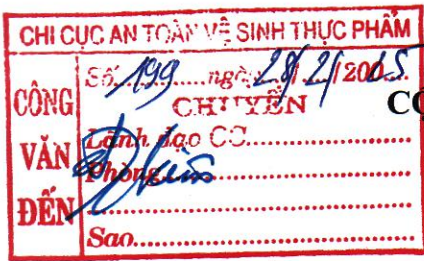 CHI CỤC AN TOÀN VỆ SINH THỰC PHẨM
CÔNG VĂN ĐẾN
Số 199 ngày 28/2/2005
CHUYỂN
Lãnh đạo CC
Phòng
Sao
CỘ